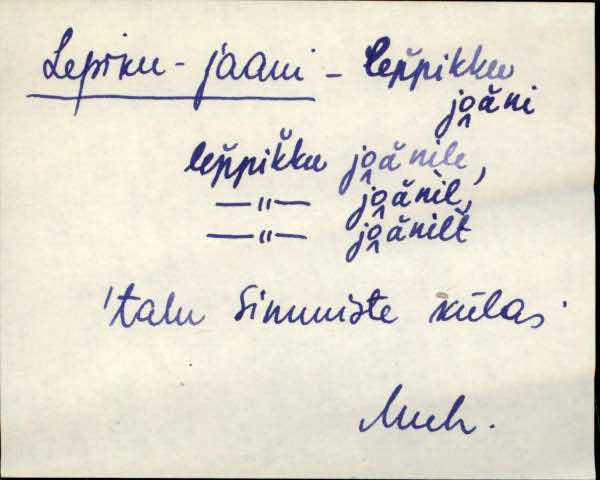 Lepiku-jaani - lep̆pikku
jo̭ăni
lep̆pik̆ku jo̭ănile,
—"— jo̭ănil,
—"— jo̭ănilt̆
'talu Simuniste külas'
Muh.